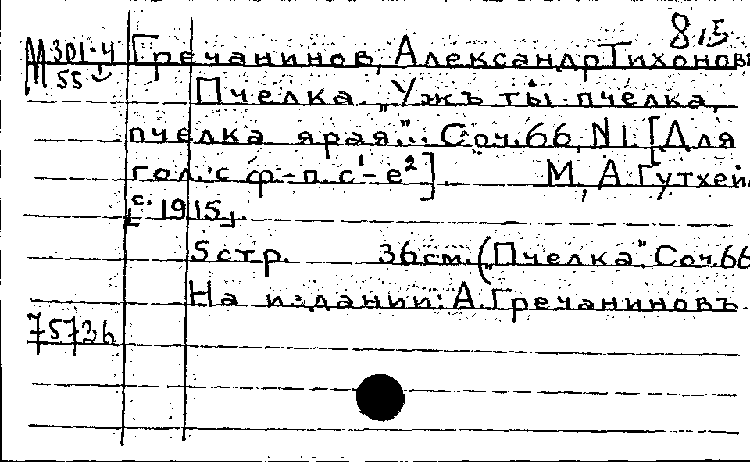 8,5
М 301-4 Гречанинов, Александр Тихонов
55 Пчелка. „Ужъ ты пчелка,
пчелка ярая."... Соч.66, N1. [Для
гол. с ф-п. с¹-е²]. М., А. Гутхей
[с. 1915].
5 стр. 36 см. („Пчелка". Соч.66
На издании: А. Гречаниновъ.
75736